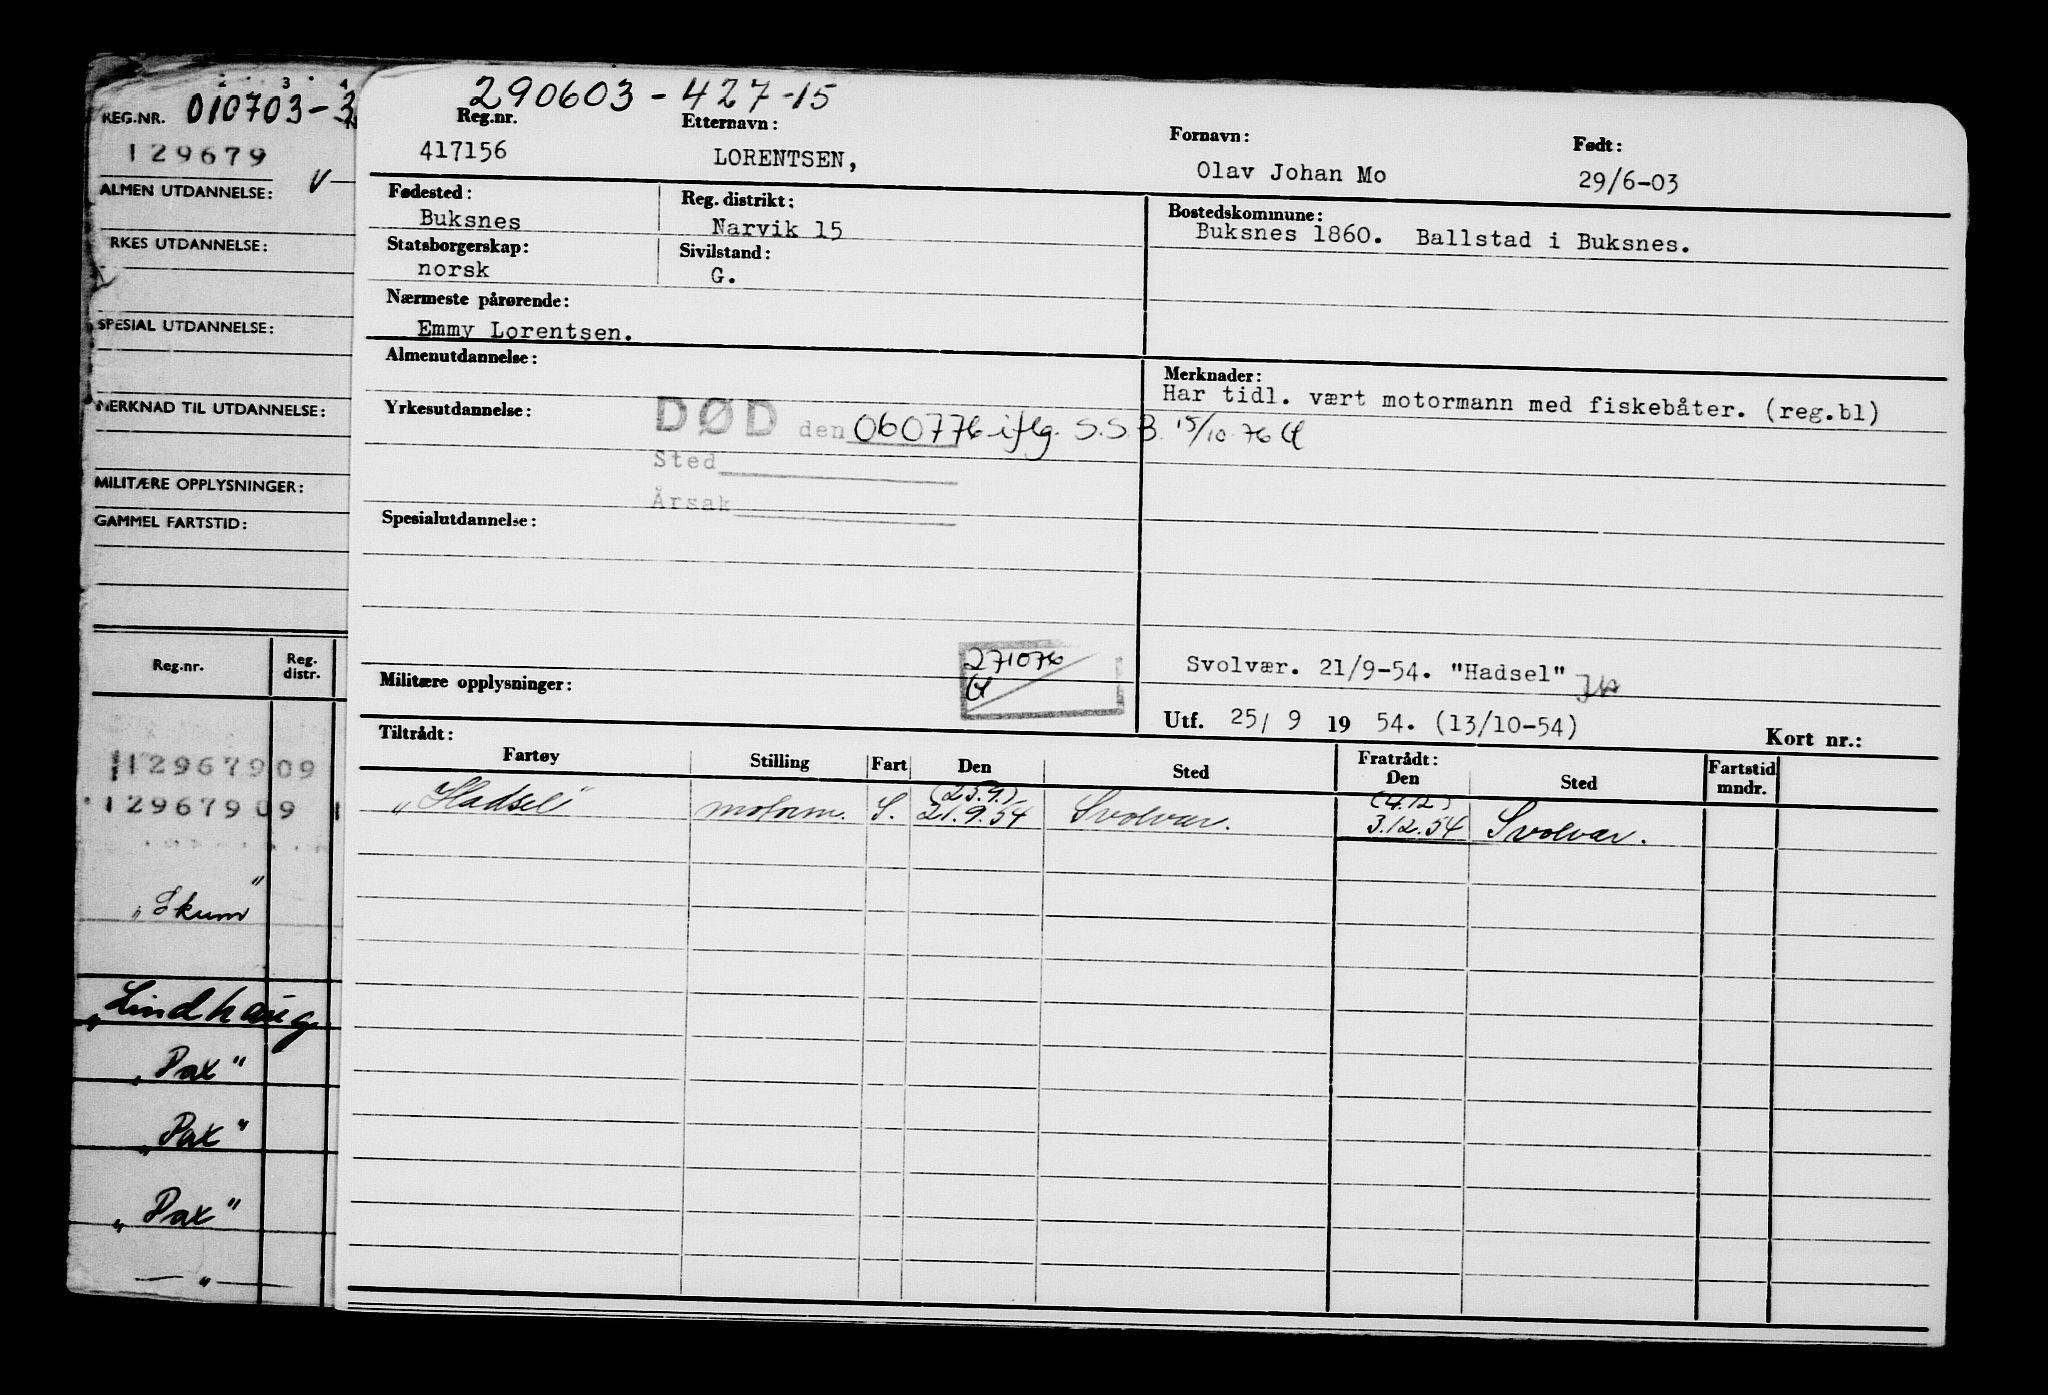 2 3 4
REG.NR. 010703-3
129679
V
ALMEN UTDANNELSE:
RKES UTDANNELSE:
SPESIAL UTDANNELSE:
MERKNAD TIL UTDANNELSE:
MILITÆRE OPPLYSNINGER:
GAMMEL FARTSTID:
Reg.nr. Reg. distr.
12967909
12967909 1
"Skum"
"Lindhaug
"Pax"
"Pax"
"Pax"
— " —
290603-427-15
Reg.nr. Etternavn: Fornavn: Født:
417156 LORENTSEN, Olav Johan Mo 29/6-03
Fødested: Reg. distrikt: Bostedskommune:
Buksnes Narvik 15 Buksnes 1860. Ballstad i Buksnes.
Statsborgerskap: Sivilstand:
norsk G.
Nærmeste pårørende:
Emmy Lorentsen.
Almenutdannelse: Merknader:
Har tidl. vært motormann med fiskebåter. (reg.bl)
Yrkesutdannelse:
DØD den 060776 iflg. S.S.B. 15/10-76
Sted
Årsak
Spesialutdannelse:
271076
Svolvær. 21/9-54. "Hadsel"
Militære opplysninger:
Utf. 25/ 9 19 54. (13/10-54) Kort nr.:
Tiltrådt: Fratrådt:
Fartøy Stilling Fart Den Sted Den Sted Fartstid mndr.
(23.9.) (4.12)
"Hadsel" motorm. S. 21.9.54 Svolvær. 3.12.54 Svolvær.